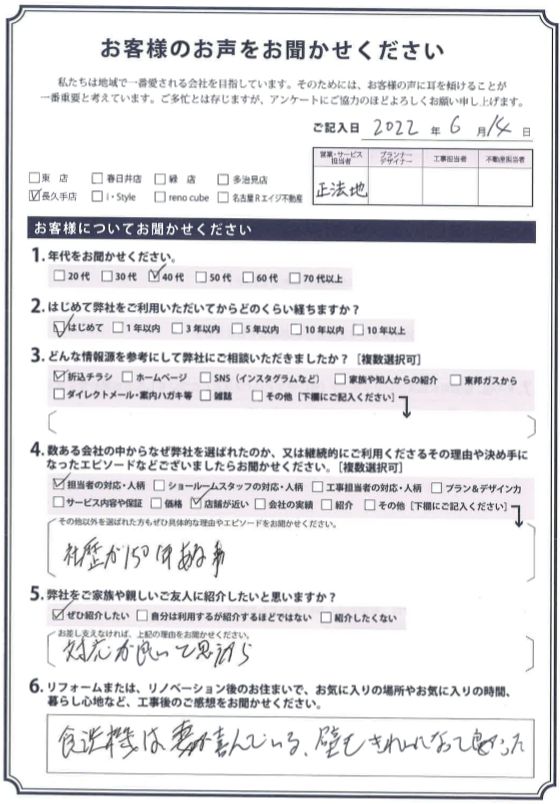 お客様のお声をお聞かせください
私たちは地域で一番愛される会社を目指しています。そのためには、お客様の声に耳を傾けることが
一番重要と考えています。ご多忙とは存じますが、アンケートにご協力のほどよろしくお願い申し上げます。
ご記入日 2022 年 6 月 14 日
営業・サービス担当者 プランナーデザイナー 工事担当者 不動産担当者
正法地
□東 店 □春日井店 □緑 店 □多治見店
☑長久手店 □i・Style □reno cube □名古屋Rエイジ不動産
お客様についてお聞かせください
1. 年代をお聞かせください。
□20代 □30代 ☑40代 □50代 □60代 □70代以上
2. はじめて弊社をご利用いただいてからどのくらい経ちますか？
☑はじめて □1年以内 □3年以内 □5年以内 □10年以内 □10年以上
3. どんな情報源を参考にして弊社にご相談いただきましたか？［複数選択可］
☑折込チラシ □ホームページ □SNS（インスタグラムなど） □家族や知人からの紹介 □東邦ガスから
□ダイレクトメール・案内ハガキ等 □雑誌 □その他［下欄にご記入ください］
4. 数ある会社の中からなぜ弊社を選ばれたのか、又は継続的にご利用くださるその理由や決め手
になったエピソードなどございましたらお聞かせください。［複数選択可］
☑担当者の対応・人柄 □ショールームスタッフの対応・人柄 □工事担当者の対応・人柄 □プラン&デザイン力
□サービス内容や保証 □価格 ☑店舗が近い □会社の実績 □紹介 □その他［下欄にご記入ください］
その他以外を選ばれた方もぜひ具体的な理由やエピソードをお聞かせください。
社歴が150年ある事
5. 弊社をご家族や親しいご友人に紹介したいと思いますか？
☑ぜひ紹介したい □自分は利用するが紹介するほどではない □紹介したくない
お差し支えなければ、上記の理由をお聞かせください。
対応が良いて思うから
6. リフォームまたは、リノベーション後のお住まいで、お気に入りの場所やお気に入りの時間、
暮らし心地など、工事後のご感想をお聞かせください。
食洗機は、妻が喜んでいる、壁もきれいになって良かった